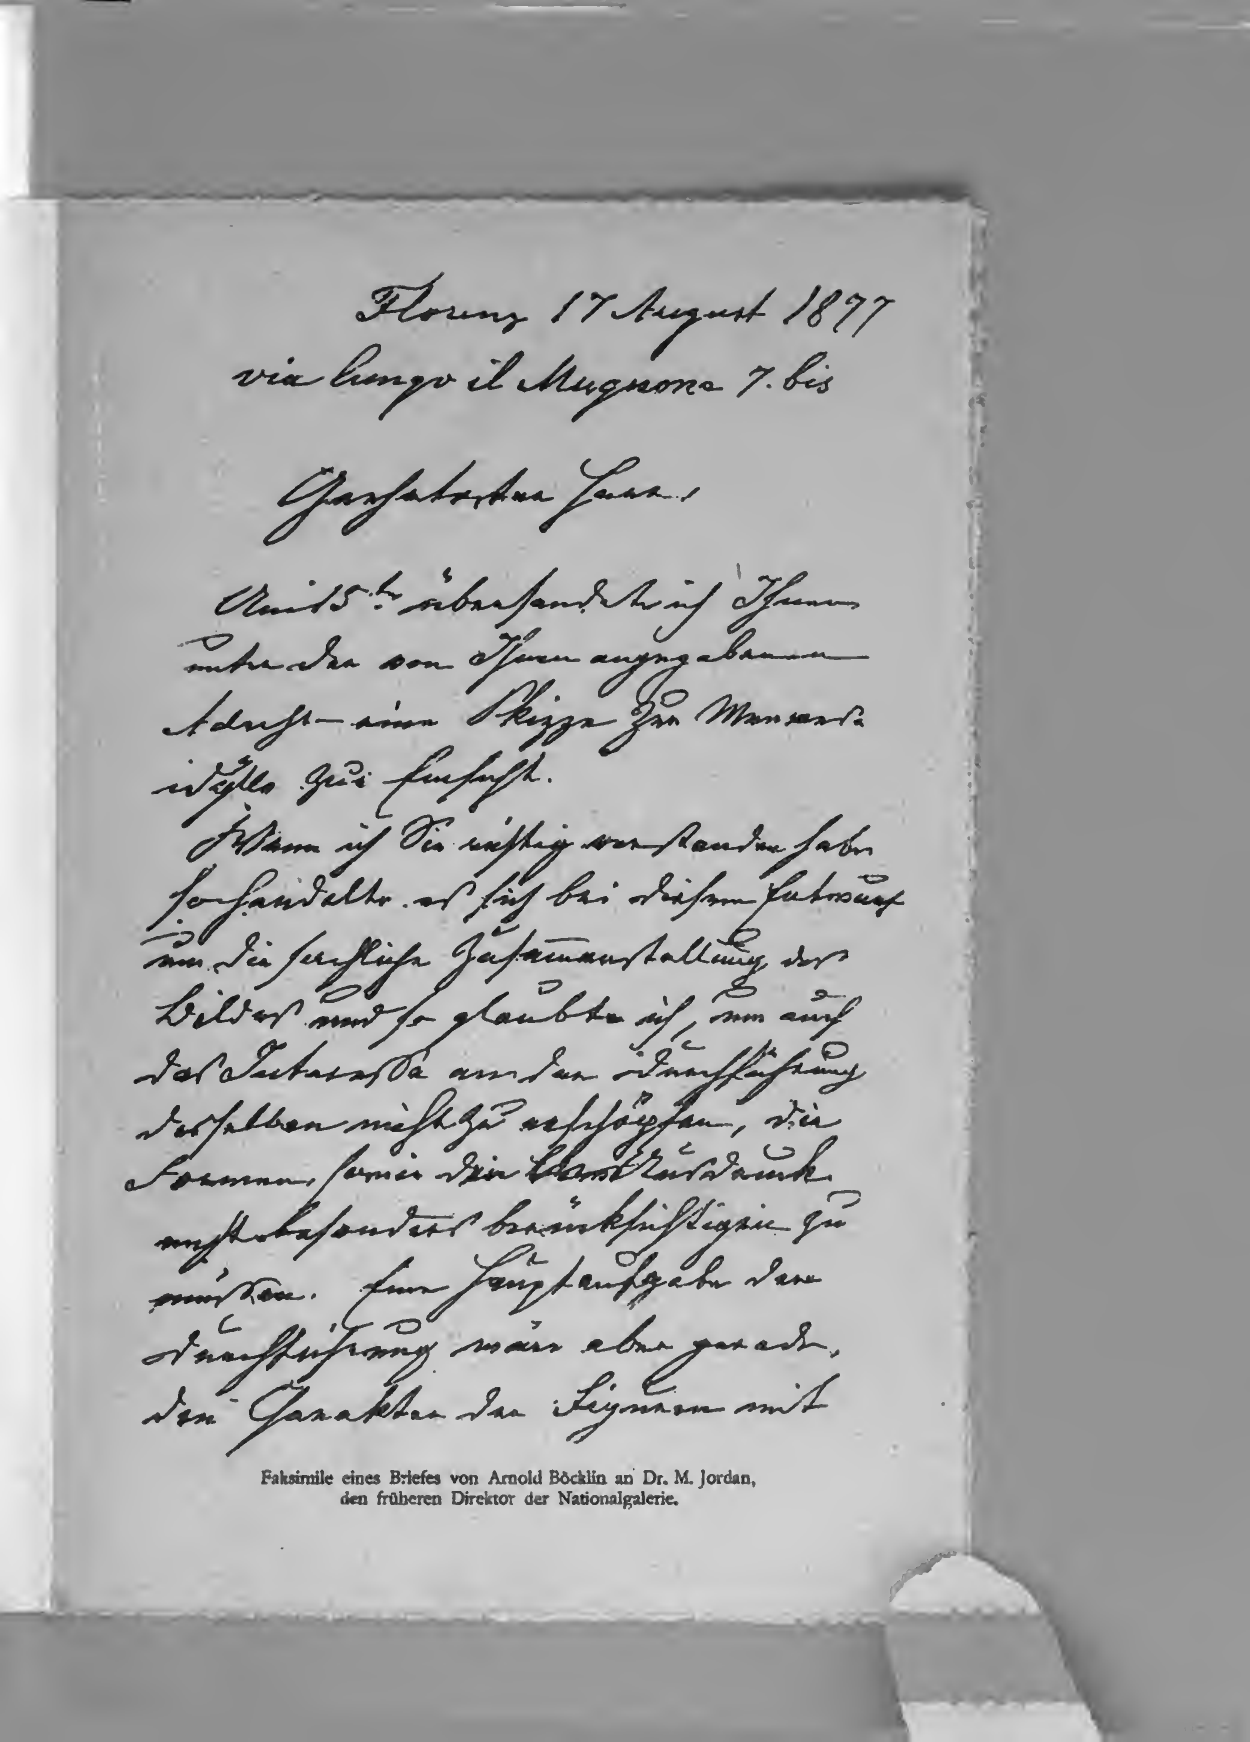 Florenz 17 August 1877
via lungo il Mugnone 7. bis
Geehrtester Herr,
Am 15ten übersandte ich Ihnen
unter der von Ihnen angegebenen
Adresse eine Skizze zur Meeres-
idylle zur Einsicht.
Wenn ich Sie richtig verstanden habe
so handelte es sich bei diesem Entwurf
um die sachliche Zusammenstellung des
Bildes und so glaubte ich, um auch
das Interesse an der Durchführung
desselben nicht zu erschöpfen, die
Formen, sowie den Ausdruck
nicht besonders berücksichtigen zu
müssen. Eine Hauptaufgabe der
Durchführung wäre aber gerade,
den Charakter der Figuren mit
Faksimile eines Briefes von Arnold Böcklin an Dr. M. Jordan,
den früheren Direktor der Nationalgalerie.